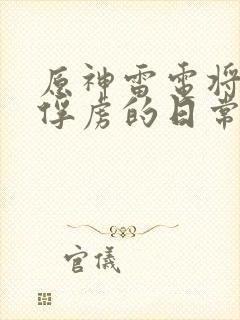 原神雷电将
俘虏的日常
官儀